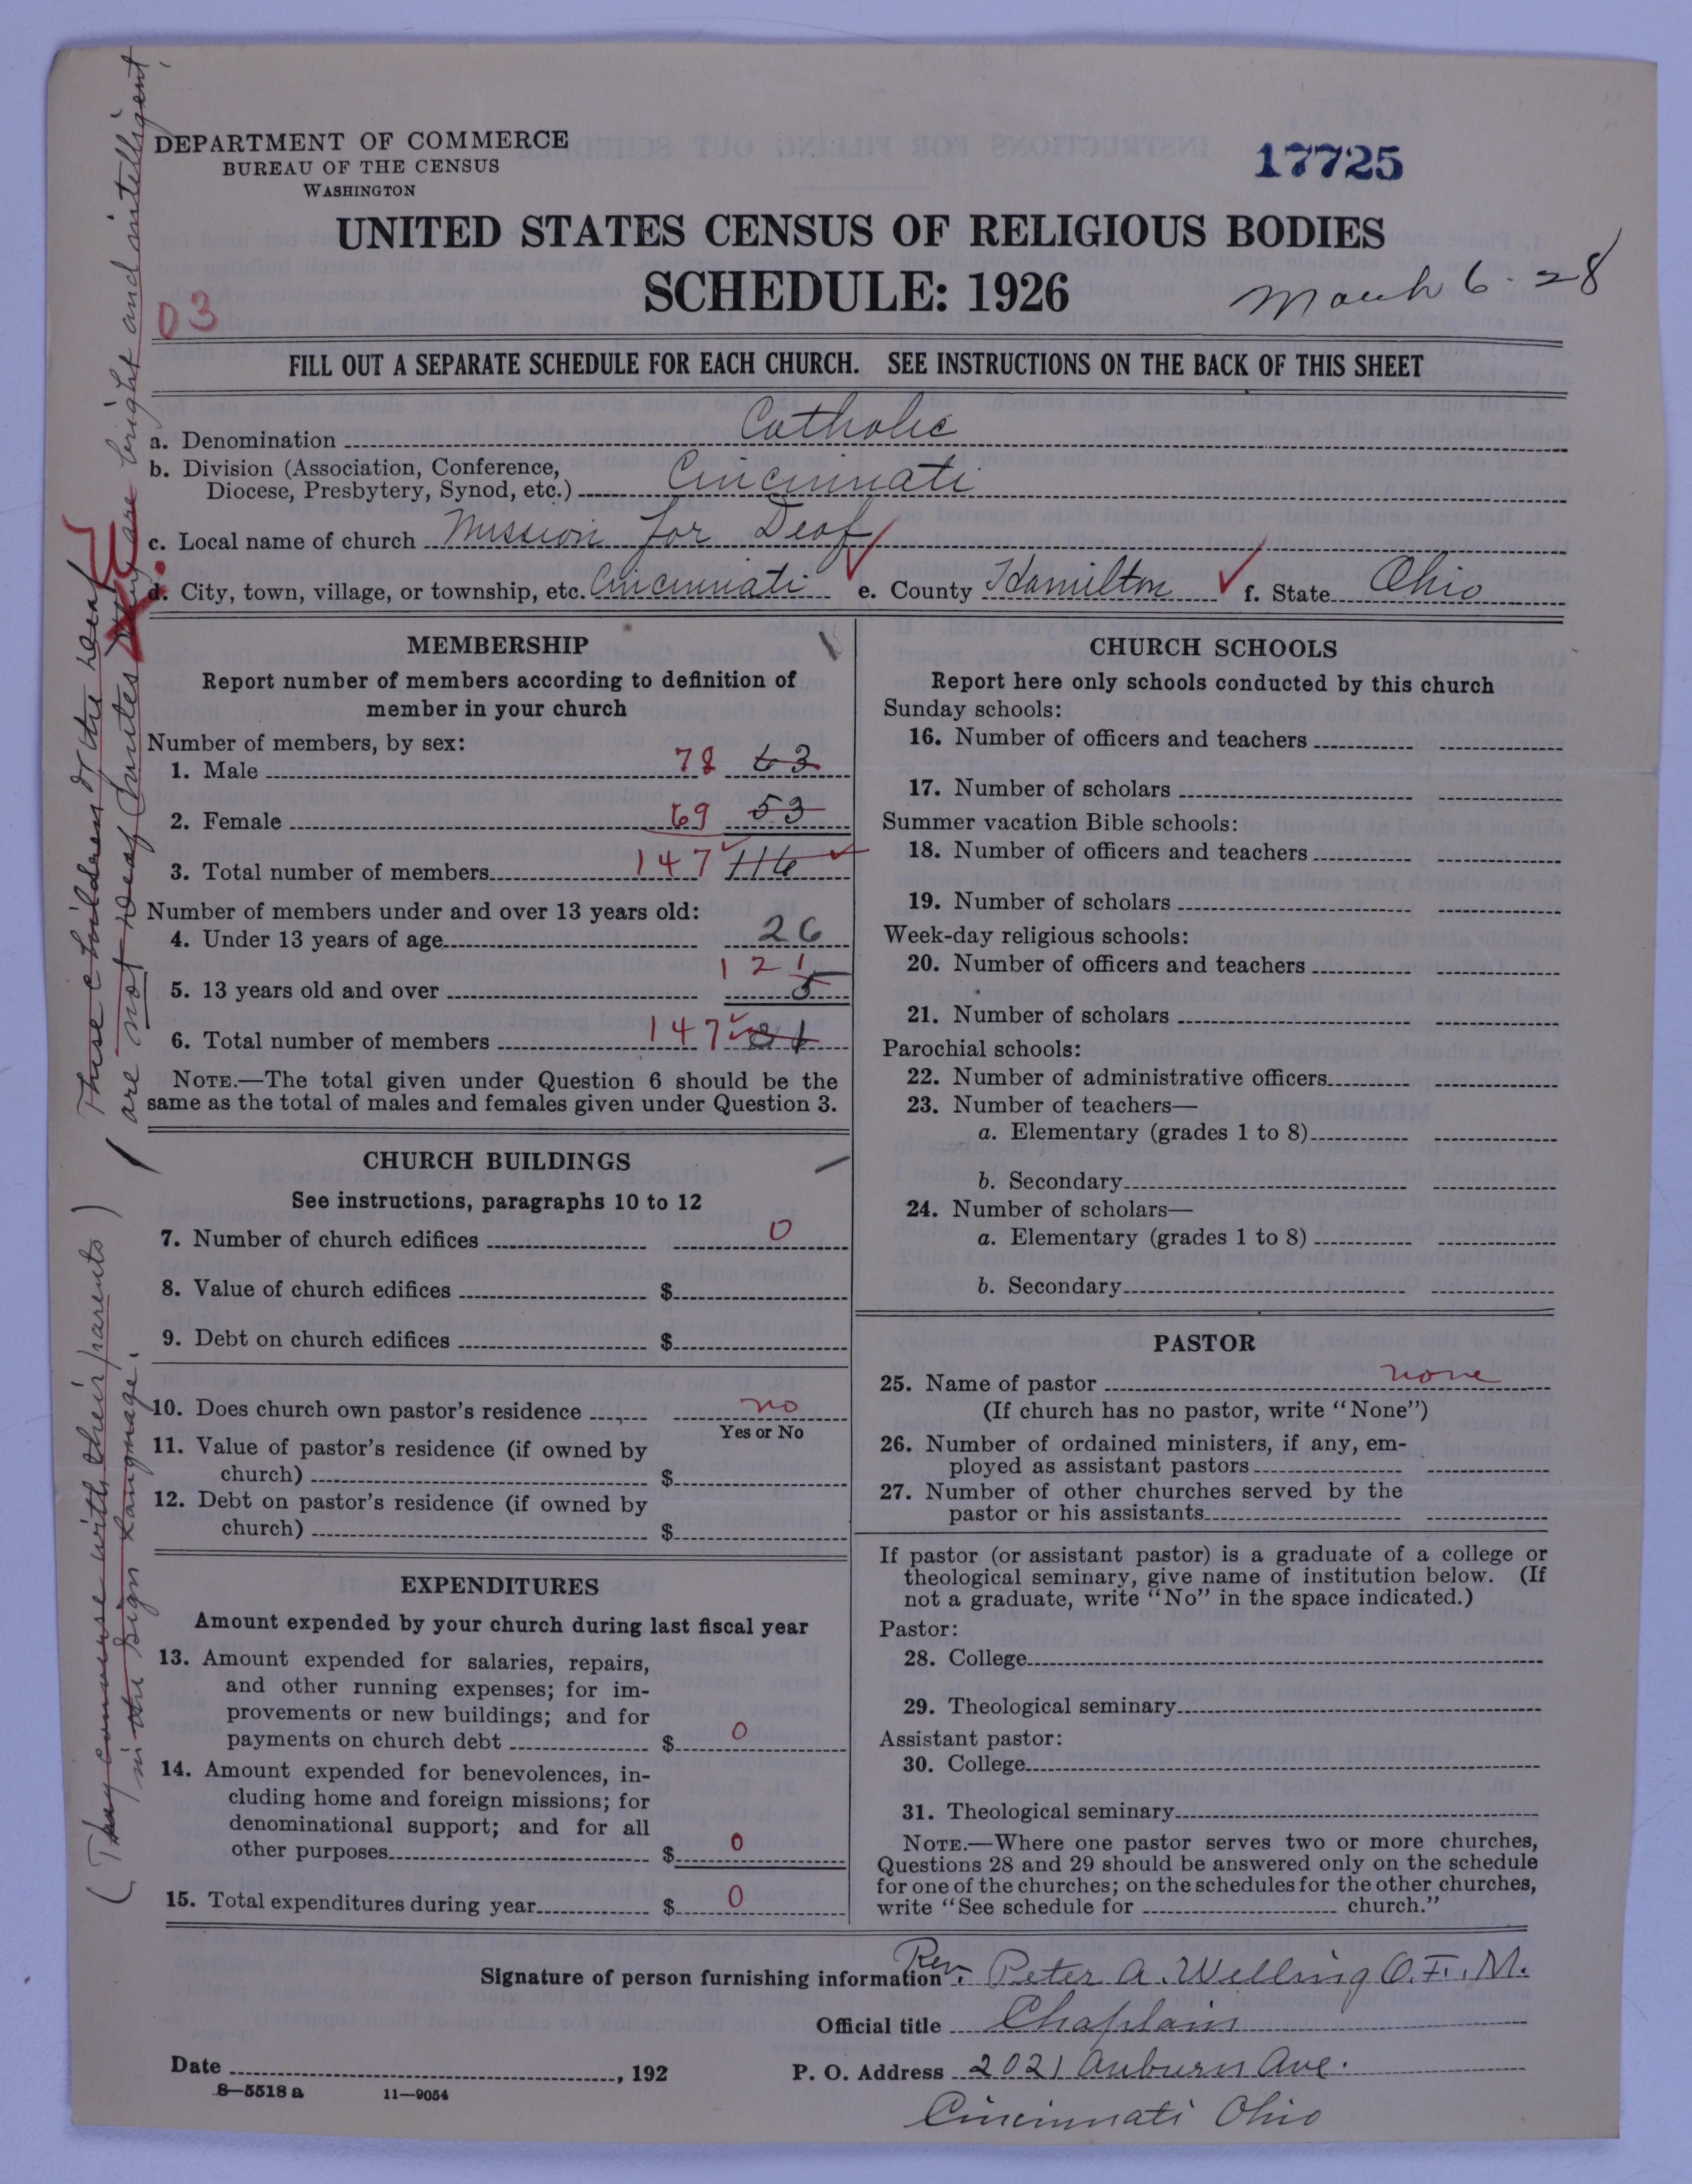 DEPARTMENT OF COMMERCE
BUREAU OF THE CENSUS
WASHINGTON
17725
UNITED STATES CENSUS OF RELIGIOUS BODIES
SCHEDULE: 1926
March 6 - 28
03
FILL OUT A SEPARATE SCHEDULE FOR EACH CHURCH. SEE INSTRUCTIONS ON THE BACK OF THIS SHEET
a. Denomination Catholic
b. Division (Association, Conference,
Diocese, Presbytery, Synod, etc.) Cincinnati
c. Local name of church Mission for Deaf
d. City, town, village, or township, etc. Cincinnati e. County Hamilton f. State Ohio
MEMBERSHIP
Report number of members according to definition of
member in your church
Number of members, by sex:
1. Male 78 63
2. Female 69 53
3. Total number of members 147 116
Number of members under and over 13 years old:
4. Under 13 years of age 26
121
5. 13 years old and over 5
6. Total number of members 147 31
NOTE.—The total given under Question 6 should be the
same as the total of males and females given under Question 3.
CHURCH BUILDINGS
See instructions, paragraphs 10 to 12
7. Number of church edifices 0
8. Value of church edifices $
9. Debt on church edifices $
10. Does church own pastor's residence no
Yes or No
11. Value of pastor's residence (if owned by
church) $
12. Debt on pastor's residence (if owned by
church) $
EXPENDITURES
Amount expended by your church during last fiscal year
13. Amount expended for salaries, repairs,
and other running expenses; for im-
provements or new buildings; and for
payments on church debt $ 0
14. Amount expended for benevolences, in-
cluding home and foreign missions; for
denominational support; and for all
other purposes $ 0
15. Total expenditures during year $ 0
CHURCH SCHOOLS
Report here only schools conducted by this church
Sunday schools:
16. Number of officers and teachers
17. Number of scholars
Summer vacation Bible schools:
18. Number of officers and teachers
19. Number of scholars
Week-day religious schools:
20. Number of officers and teachers
21. Number of scholars
Parochial schools:
22. Number of administrative officers
23. Number of teachers—
a. Elementary (grades 1 to 8)
b. Secondary
24. Number of scholars—
a. Elementary (grades 1 to 8)
b. Secondary
PASTOR
25. Name of pastor none
(If church has no pastor, write "None")
26. Number of ordained ministers, if any, em-
ployed as assistant pastors
27. Number of other churches served by the
pastor or his assistants
If pastor (or assistant pastor) is a graduate of a college or
theological seminary, give name of institution below. (If
not a graduate, write "No" in the space indicated.)
Pastor:
28. College
29. Theological seminary
Assistant pastor:
30. College
31. Theological seminary
NOTE.—Where one pastor serves two or more churches,
Questions 28 and 29 should be answered only on the schedule
for one of the churches; on the schedules for the other churches,
write "See schedule for church."
Signature of person furnishing information Rev. Peter A. Welling O.F.M.
Official title Chaplain
Date , 192
P. O. Address 2021 Auburn Ave.
Cincinnati Ohio
8—5518 a 11—9054
These children of the deaf
( are not Deaf Mutes they are bright and intelligent.
( They converse with their parents )
in the sign language.